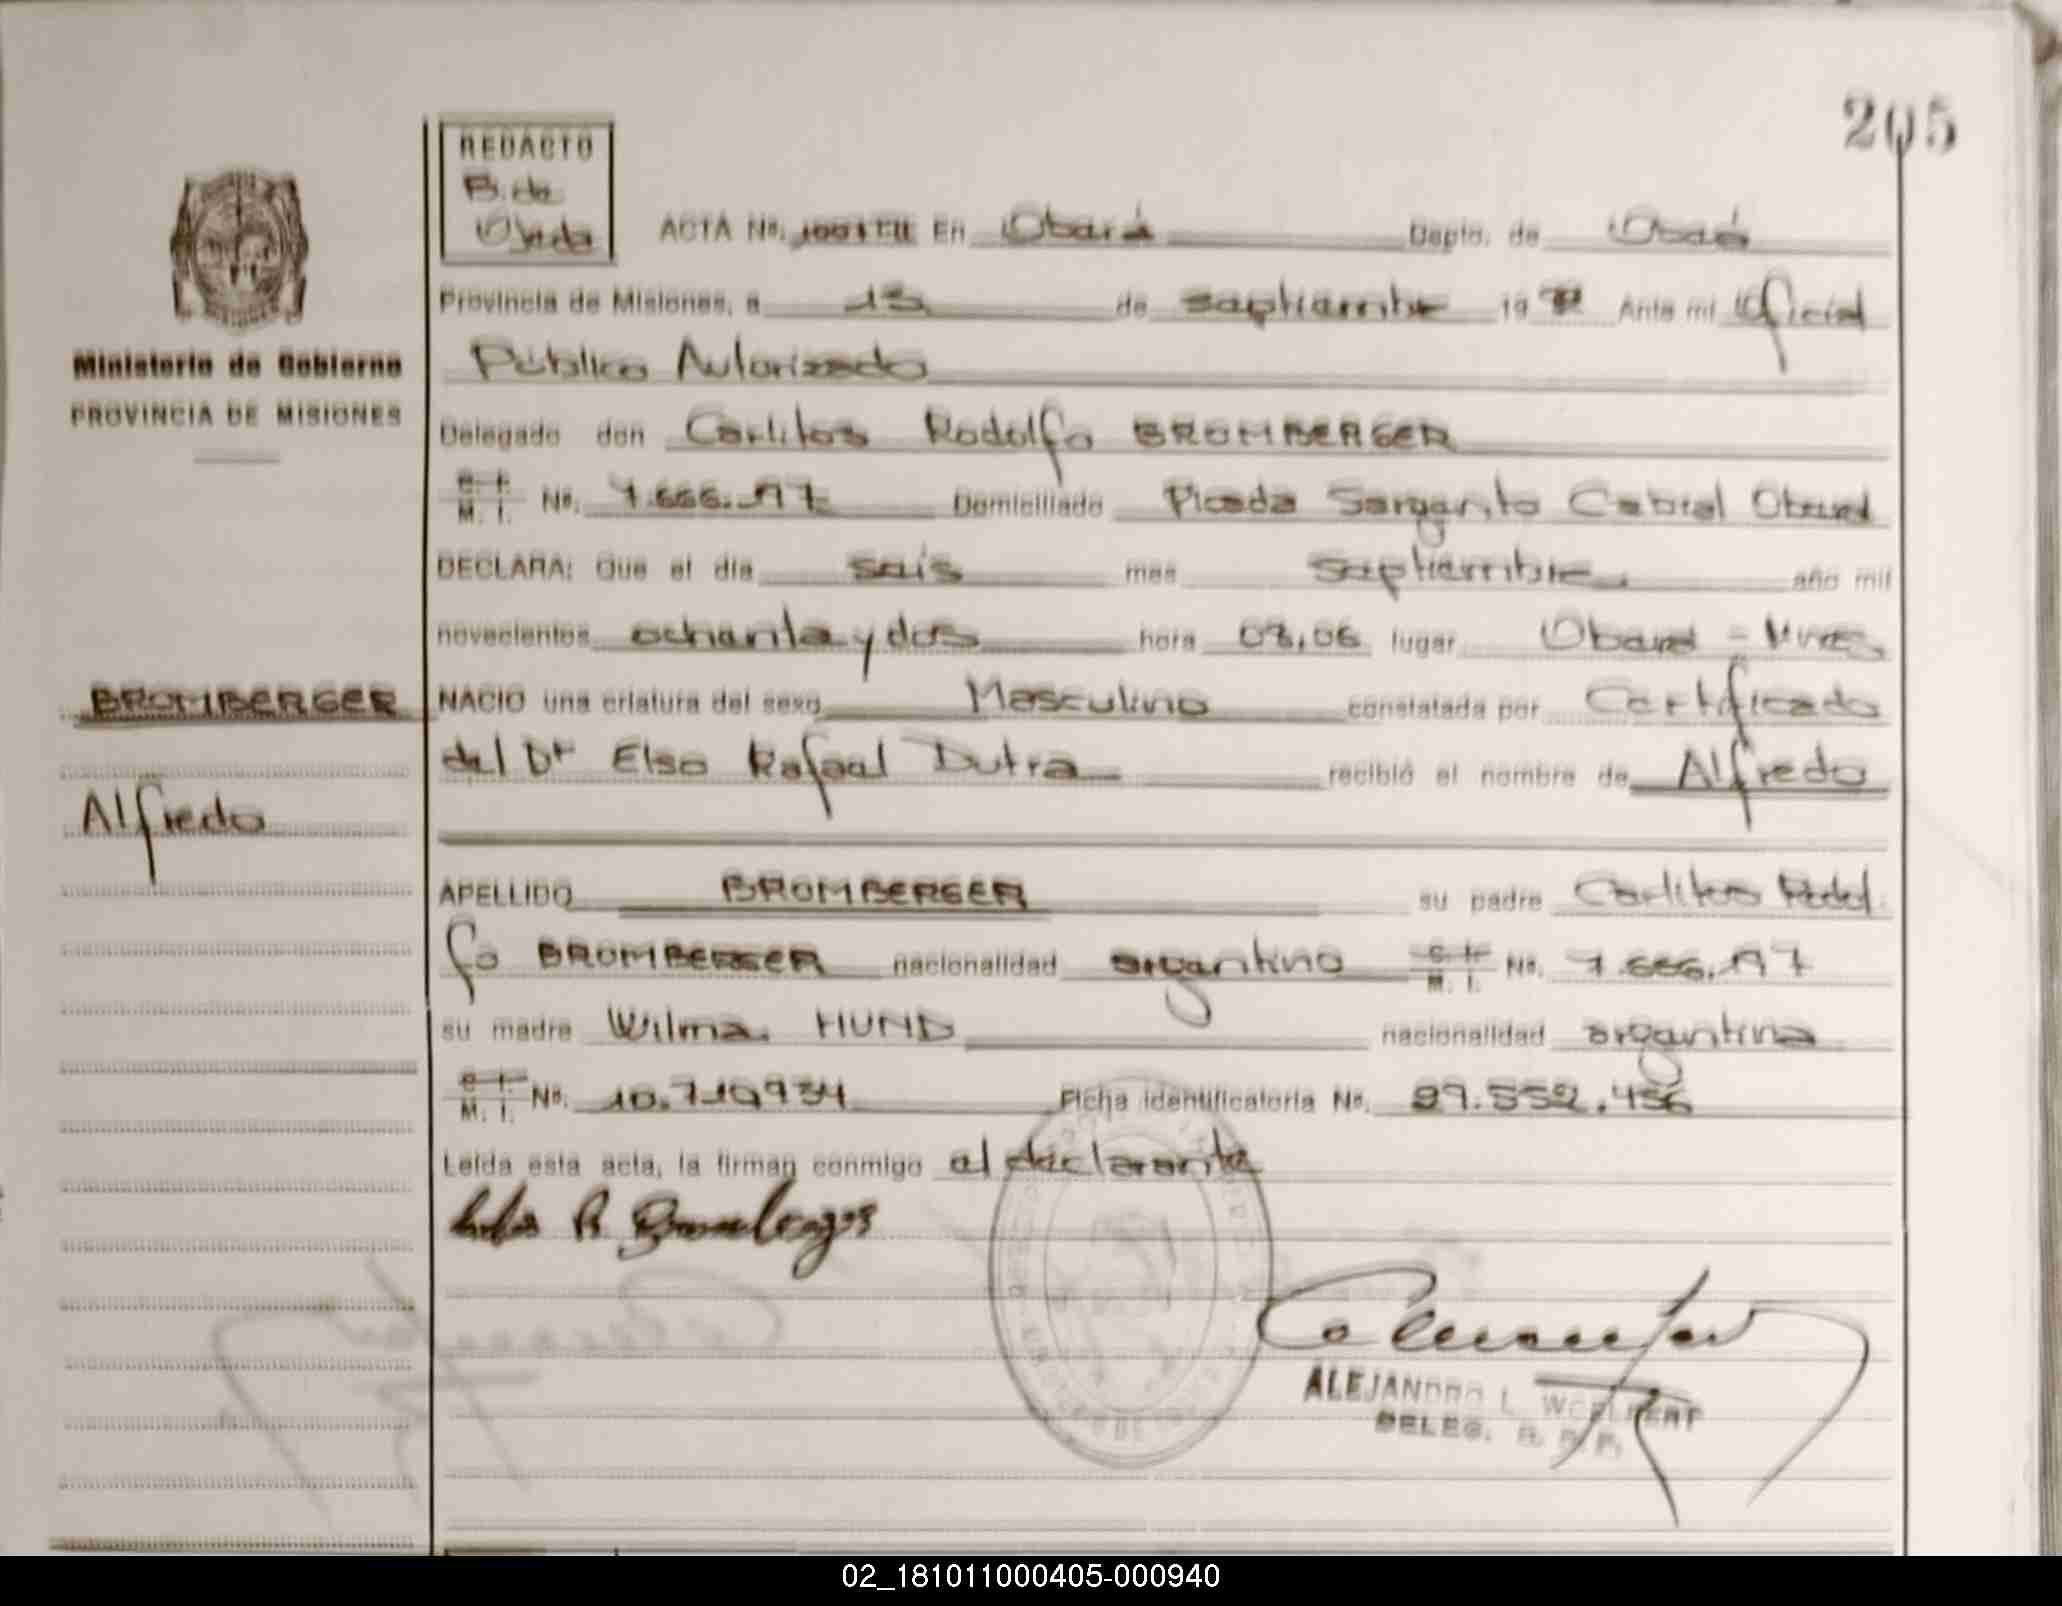 205
REDACTO
B. de
Ojeda
ACTA Nº. En Oberá Depto. de Oberá
Provincia de Misiones, a 13 de septiembre 19 Ante mi Oficial
Público Autorizado
Delegado don Carlitos Rodolfo BROMBERGER
C. I. M. I. Nº. 7.666. Domiciliado Picada Sargento Cabral Oberá
DECLARA: Que el día seis mes septiembre año mil
novecientos ochenta y dos hora 08,06 lugar Oberá - Mnes
NACIO una criatura del sexo Masculino constatada por Certificado
del Dr Elso Rafael Dutra recibió el nombre de Alfredo
APELLIDO BROMBERGER su padre Carlitos Rodol
fo BROMBERGER nacionalidad argentino C. I. M. I. Nº.
su madre Wilma HUND nacionalidad argentina
C. I. M. I. Nº. Ficha identificatoria Nº. 29.552.456
Leída esta acta, la firman conmigo el declarante
ALEJANDRO L. WOELFERT
DELEG. R. P. P.
Ministerio de Gobierno
PROVINCIA DE MISIONES
BROMBERGER
Alfredo
02_181011000405-000940